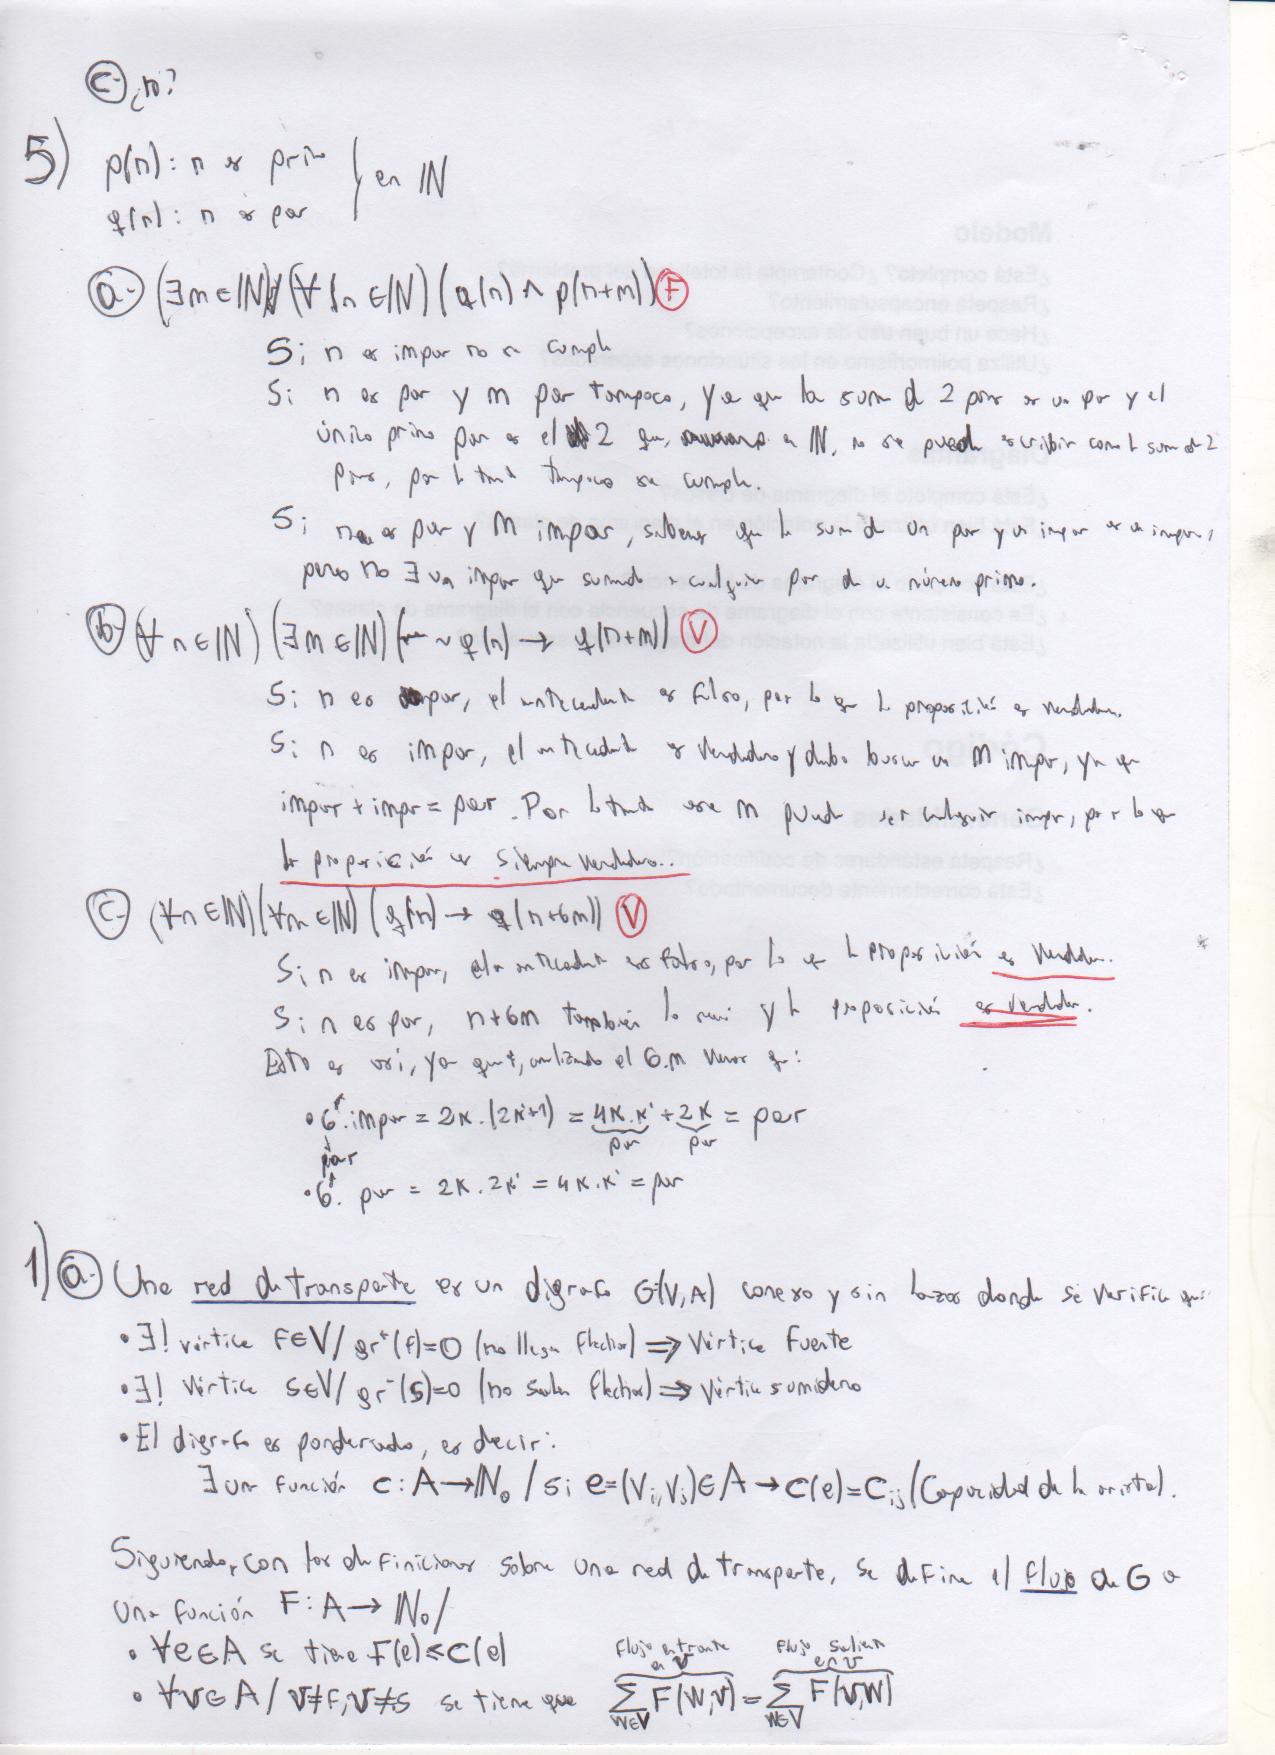 c- ¿no?
5) p(n): n es primo } en ℕ
q(n): n es par
a- (∃m∈ℕ)(∀n∈ℕ)(q(n) ∧ p(n+m)) F
Si n es impar no se cumple
Si n es par y m par tampoco, ya que la suma de 2 pares es un par y el
único primo par es el 2 que, en ℕ, no se puede escribir como la suma de 2
pares, por lo tanto tampoco se cumple.
Si n es par y m impar, sabemos que la suma de un par y un impar es un impar,
pero no ∃ un impar que sumado a cualquier par de un número primo.
b- (∀n∈ℕ)(∃m∈ℕ)(~q(n) → q(n+m)) V
Si n es par, el antecedente es falso, por lo que la proposición es verdadera.
Si n es impar, el antecedente es verdadero y debo buscar un m impar, ya que
impar + impar = par. Por lo tanto ese m puede ser cualquier impar, por lo que
la proposición es siempre verdadera.
c- (∀n∈ℕ)(∀m∈ℕ)(q(n) → q(n+6m)) V
Si n es impar, el antecedente es falso, por lo que la proposición es verdadera.
Si n es par, n+6m también lo será y la proposición es verdadera.
Esto es así, ya que, analizando el 6.m vemos que:
• 6.impar = 2k.(2k'+1) = 4k.k' + 2k = par
par par par
• 6.par = 2k.2k' = 4k.k' = par
1) a- Una red de transporte es un digrafo G=(V,A) conexo y sin lazos donde se verifica que:
• ∃! vértice f∈V/ gr⁺(f)=0 (no llegan flechas) ⇒ Vértice fuente
• ∃! vértice s∈V/ gr⁻(s)=0 (no salen flechas) ⇒ Vértice sumidero
• El digrafo es ponderado, es decir:
∃ una función c: A→ℕ₀ / si e=(Vi,Vj)∈A → c(e)=Cij (Capacidad de la arista).
Siguiendo con las definiciones sobre una red de transporte, se define el flujo de G a
una función F: A→ℕ₀/
• ∀e∈A se tiene F(e)≤c(e)
flujo entrante en v flujo saliente en v
• ∀v∈A / v≠f, v≠s se tiene que Σ F(w,v) = Σ F(v,w)
w∈V w∈V